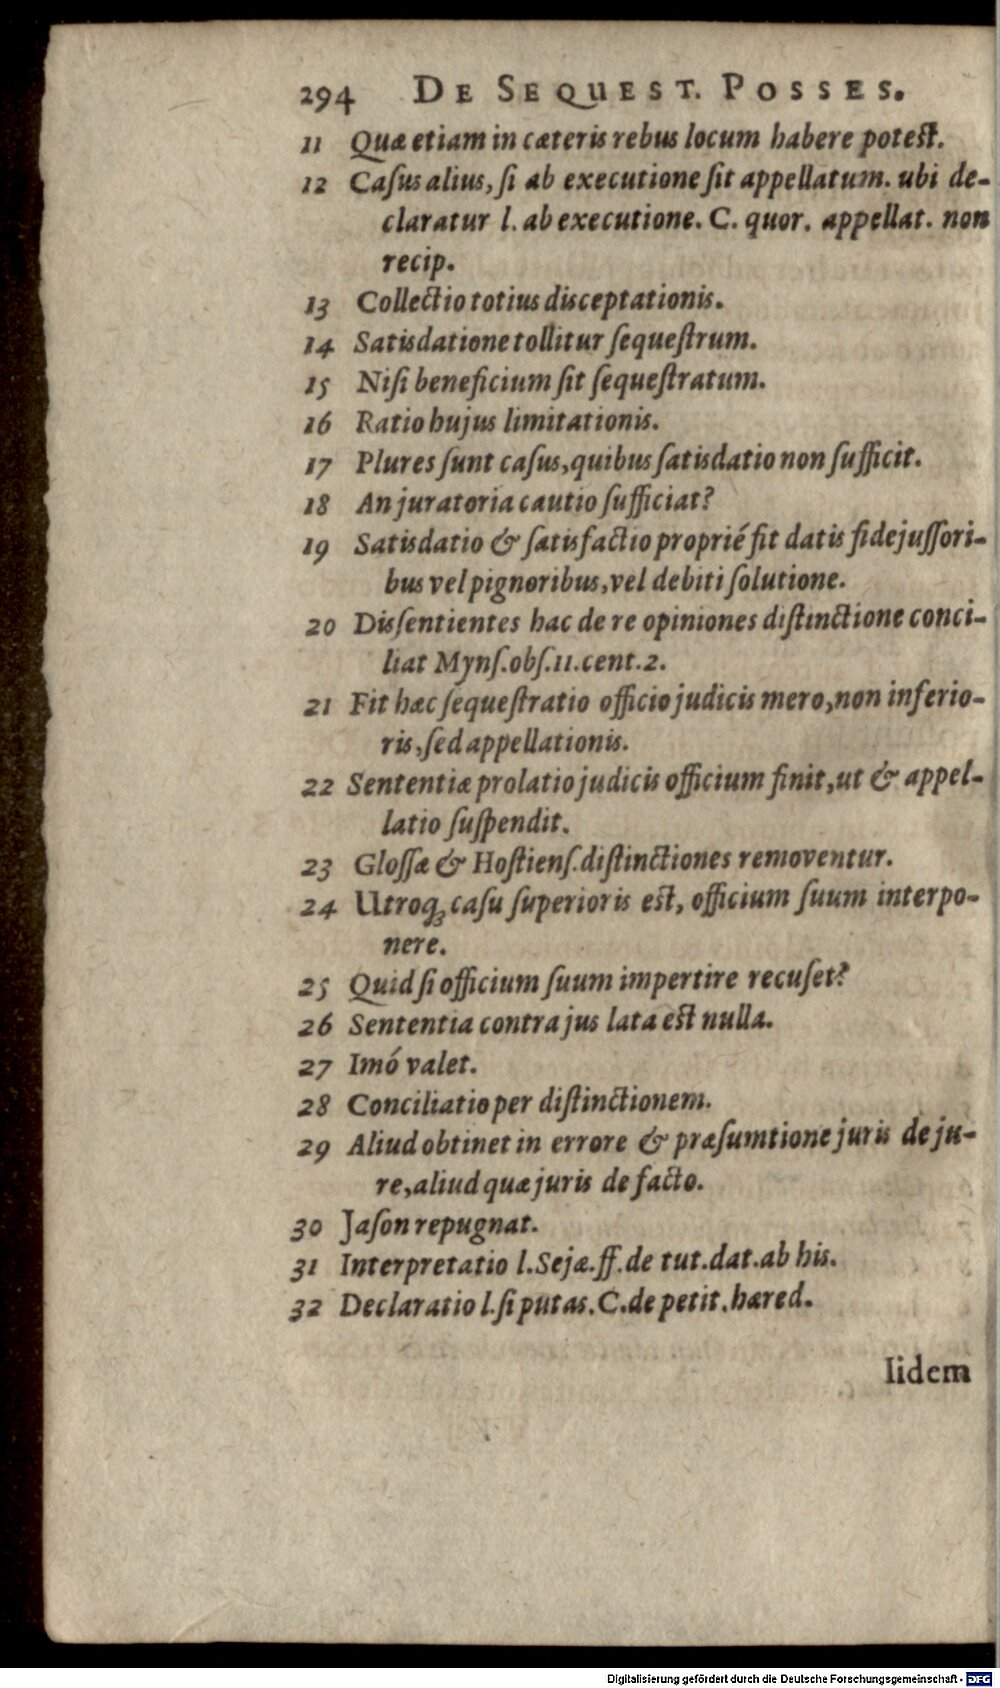 294 DE SEQUEST. POSSES.
11 Quæ etiam in cæteris rebus locum habere potest.
12 Caſus alius, ſi ab executione ſit appellatum. ubi de-
claratur l. ab executione. C. quor. appellat. non
recip.
13 Collectio totius disceptationis.
14 Satisdatione tollitur ſequeſtrum.
15 Niſi beneficium ſit ſequeſtratum.
16 Ratio hujus limitationis.
17 Plures ſunt caſus, quibus ſatisdatio non ſufficit.
18 An juratoria cautio ſufficiat?
19 Satisdatio & ſatisfactio proprié fit datis fidejuſſori-
bus vel pignoribus, vel debiti ſolutione.
20 Disſentientes hac de re opiniones diſtinctione conci-
liat Mynſ. obſ. 11. cent. 2.
21 Fit hæc ſequeſtratio officio judicis mero, non inferio-
ris, ſed appellationis.
22 Sententiæ prolatio judicis officium finit, ut & appel-
latio ſuſpendit.
23 Gloſſæ & Hoſtienſ. diſtinctiones removentur.
24 Utroq; caſu ſuperioris est, officium ſuum interpo-
nere.
25 Quid ſi officium ſuum impertire recuſet?
26 Sententia contra jus lata est nulla.
27 Imó valet.
28 Conciliatio per diſtinctionem.
29 Aliud obtinet in errore & præſumtione juris de ju-
re, aliud quæ juris de facto.
30 Jaſon repugnat.
31 Interpretatio l. Sejæ. ff. de tut. dat. ab his.
32 Declaratio l. ſi putas. C. de petit. hæred.
Iidem
Digitalisierung gefördert durch die Deutsche Forschungsgemeinschaft - DFG